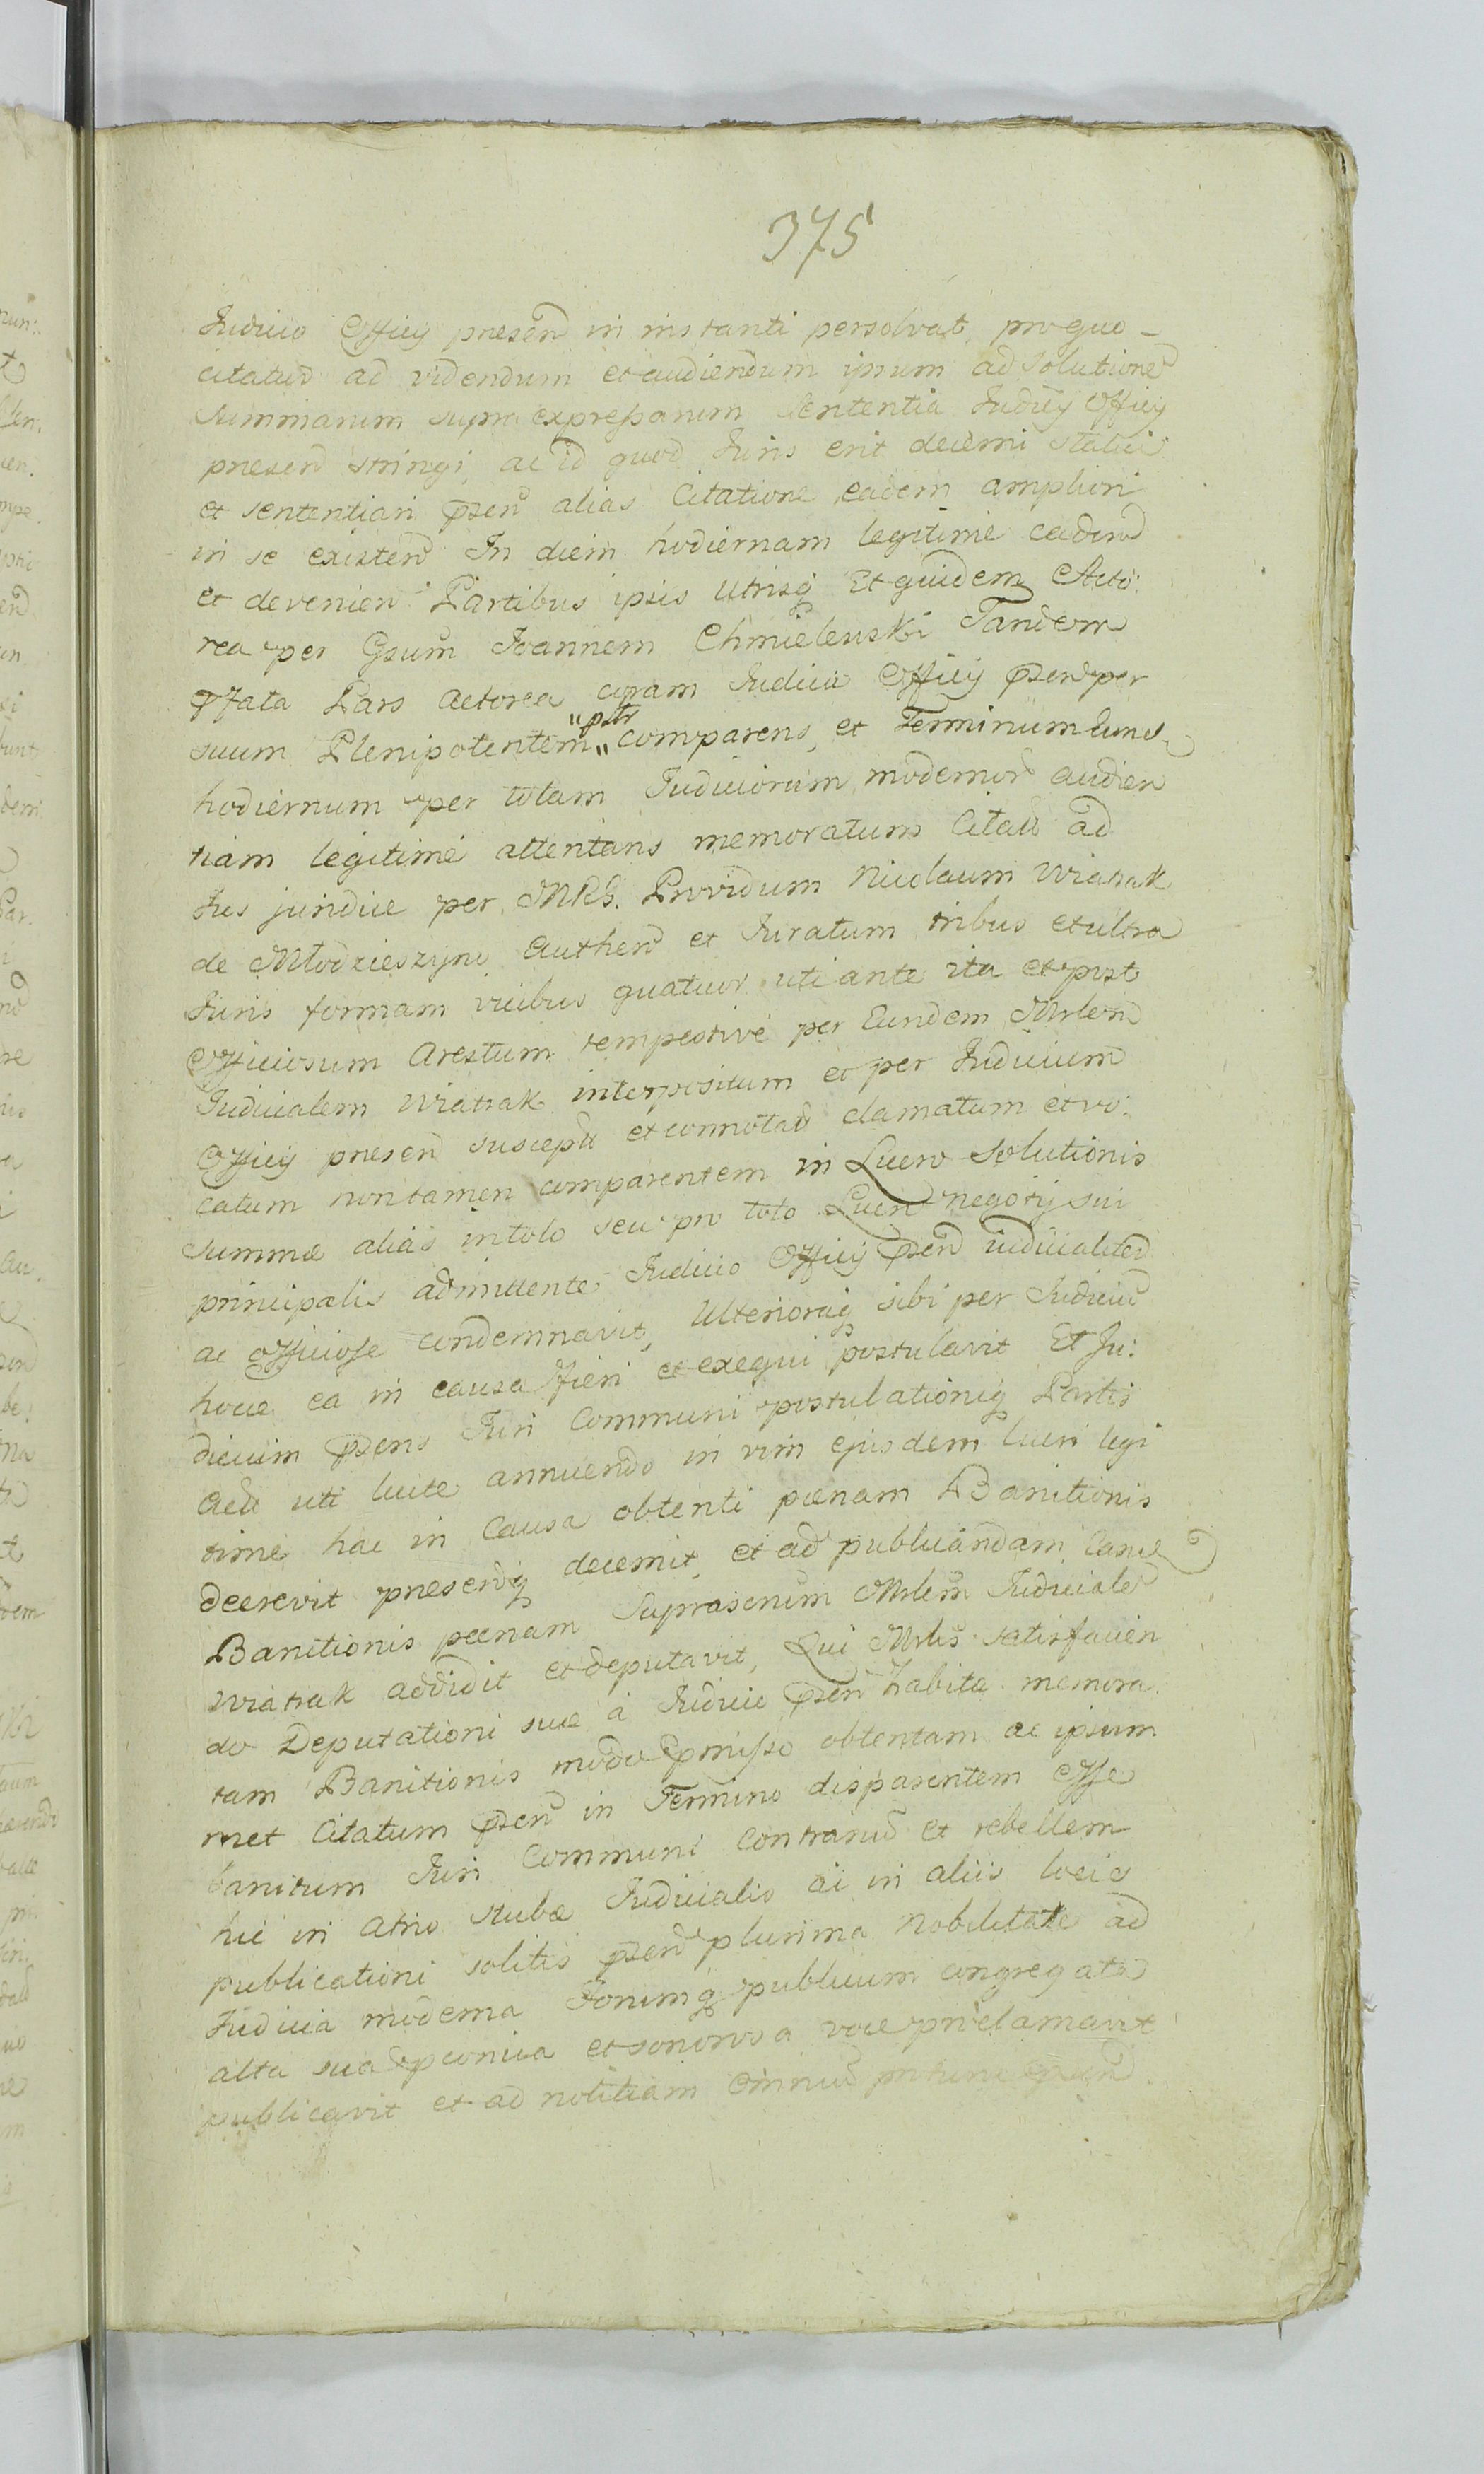 375
Judicio Officij presen in instanti persolvat, pro quo –
citatur ad videndum et audiendum ipsum ad solutione
summarum supra expressarum Sententia Judicij Officij
presen stringi, ac id quod Juris erit decerni statui
et sententiari psen alias Citatione eadem ampliori
in se existen In diem hodiernam legitime caden
et devenien Partibus ipsis Utrisq Et quidem Acto:
rea per Gsum Joannem Chmielewski Tandem
Pfata Pars Actorea coram Judicio Officij psen per
suum Plenipotentem " pttr " comparens, et Terminum hunc
hodiernum per totam Judiciorum modernor audien
tiam legitime attentans memoratum Citatu ad
Jus juridice per MRG. Providum Nicolaum Wiatrak
de Młodzieszyn Authen et Juratum tribus et ultra
Juris formam vicibus quatuor uti ante ita et post
Officiosum Arestum tempestive per Eundem Mrlem
Judicialem Wiatrak interpositum et per Judicium
Officij presen suscept et connotatu clamatum et vo:
catum non tamen comparentem in Lucro Solutionis
Summæ alias in toto seu pro toto Lucro negotij sui
principalis admittente Judicio Officij psen iudicialiter
ac officiose condemnavit, Ulterioraq sibi per Judiciu
hocce ea in causa fieri et exequi postulavit Et Ju:
dicium psens Juri Communi postulationiq Partis
Actu uti licite annuendo in vim ejusdem lucri legi
time hac in Causa obtenti pœnam Banitionis
decrevit presenq decernit, et ad publicandam eance
Banitionis pœnam Suprascrium Mrlem Judiciale
Wiatrak addidit et deputavit, Qui Mrlis satisfacien
do Deputationi suæ à Judicio psen habitæ memora
tam Banitionis modo pmisso obtentam ac ipsum
met Citatum psen in Termino disparentem Esse
banitum Juri Communi Contrariu et rebellem
hic in Atrio Stubæ Judicialis ai in aliis locis
publicationi solitis psen plurima Nobilitate ad
Judicia moderna Forumq publicum congregata
alta sua pconica et sonorosa voce proclamavit
publicavit et ad notitiam omnium